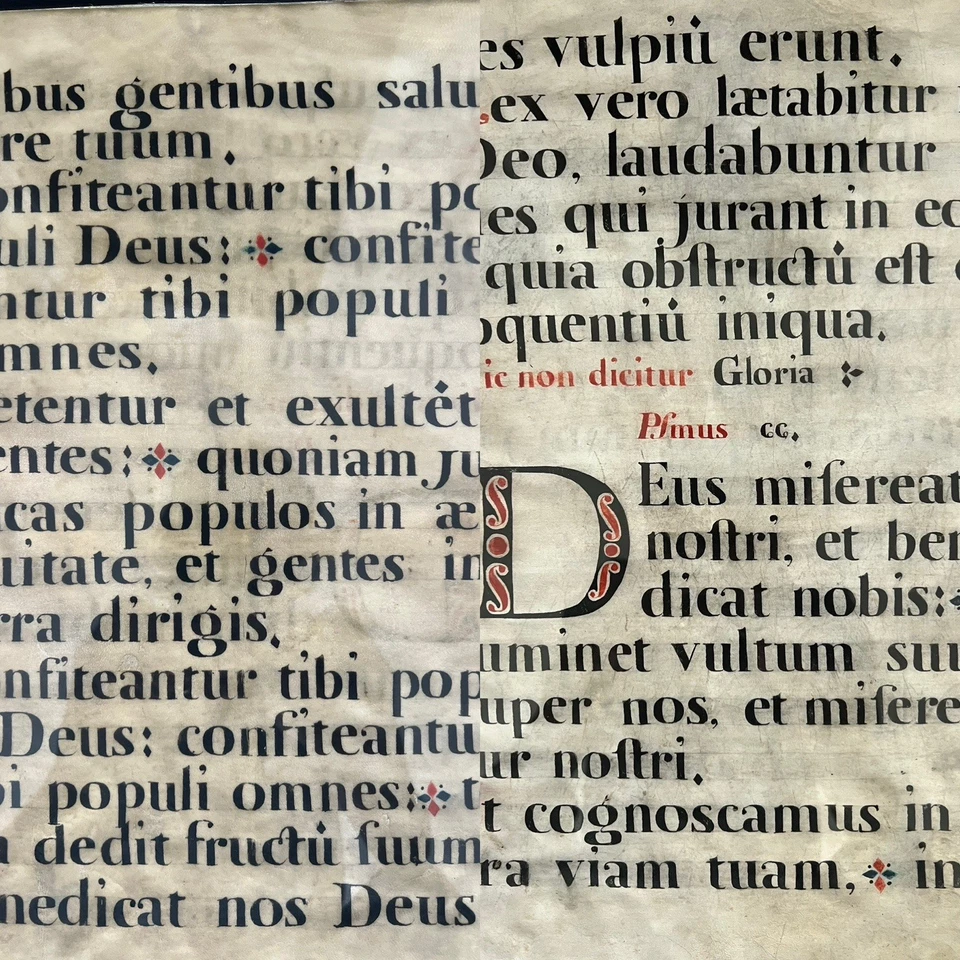 bus gentibus salu
re tuum.
onfiteantur tibi po
uli Deus: confite
ntur tibi populi
mnes.
etentur et exultėt
entes: quoniam ju
cas populos in æ
uitate, et gentes in
rra dirigis.
nfiteantur tibi pop
Deus: confiteantu
i populi omnes: t
dedit fructu̇ ſuum
nedicat nos Deus
es vulpiu̇ erunt.
ex vero lætabitur
Deo, laudabuntur
es qui jurant in eo
quia obſtructu̇ eſt
oquentiu̇ iniqua.
ic non dicitur Gloria
Pſmus cc.
DEus miſereat
noſtri, et ben
dicat nobis:
uminet vultum suu
uper nos, et miſere
ur noſtri.
t cognoscamus in
ra viam tuam, in